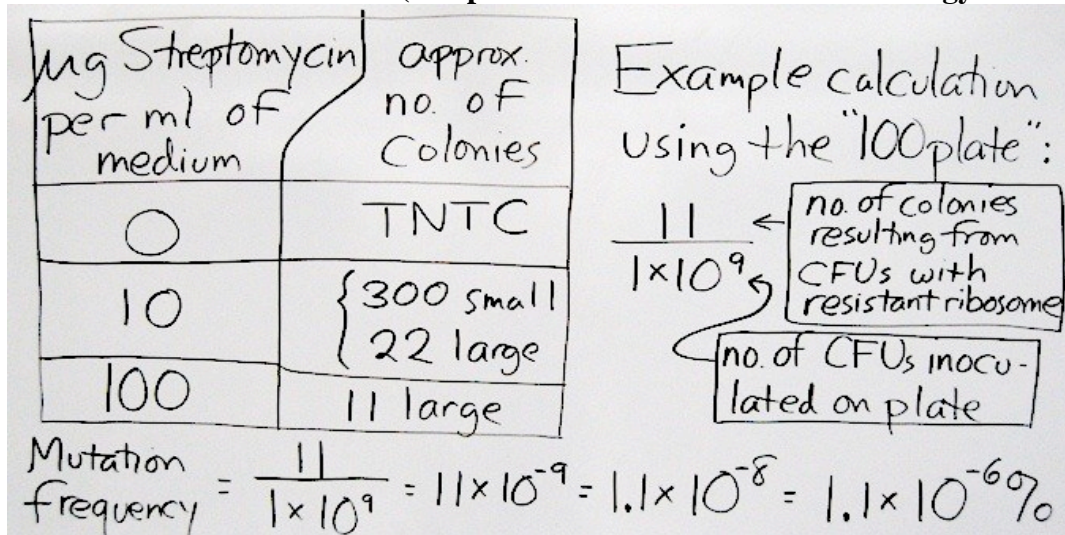 µg Streptomycin
per ml of
medium
approx.
no. of
Colonies
0
TNTC
10
300 small
22 large
100
11 large
Example calculation
using the "100 plate":
11
1×10⁹
no. of colonies
resulting from
CFUs with
resistant ribosome
no. of CFUs inocu-
lated on plate
Mutation
frequency = 11 / 1×10⁹ = 11×10⁻⁹ = 1.1×10⁻⁸ = 1.1×10⁻⁶%